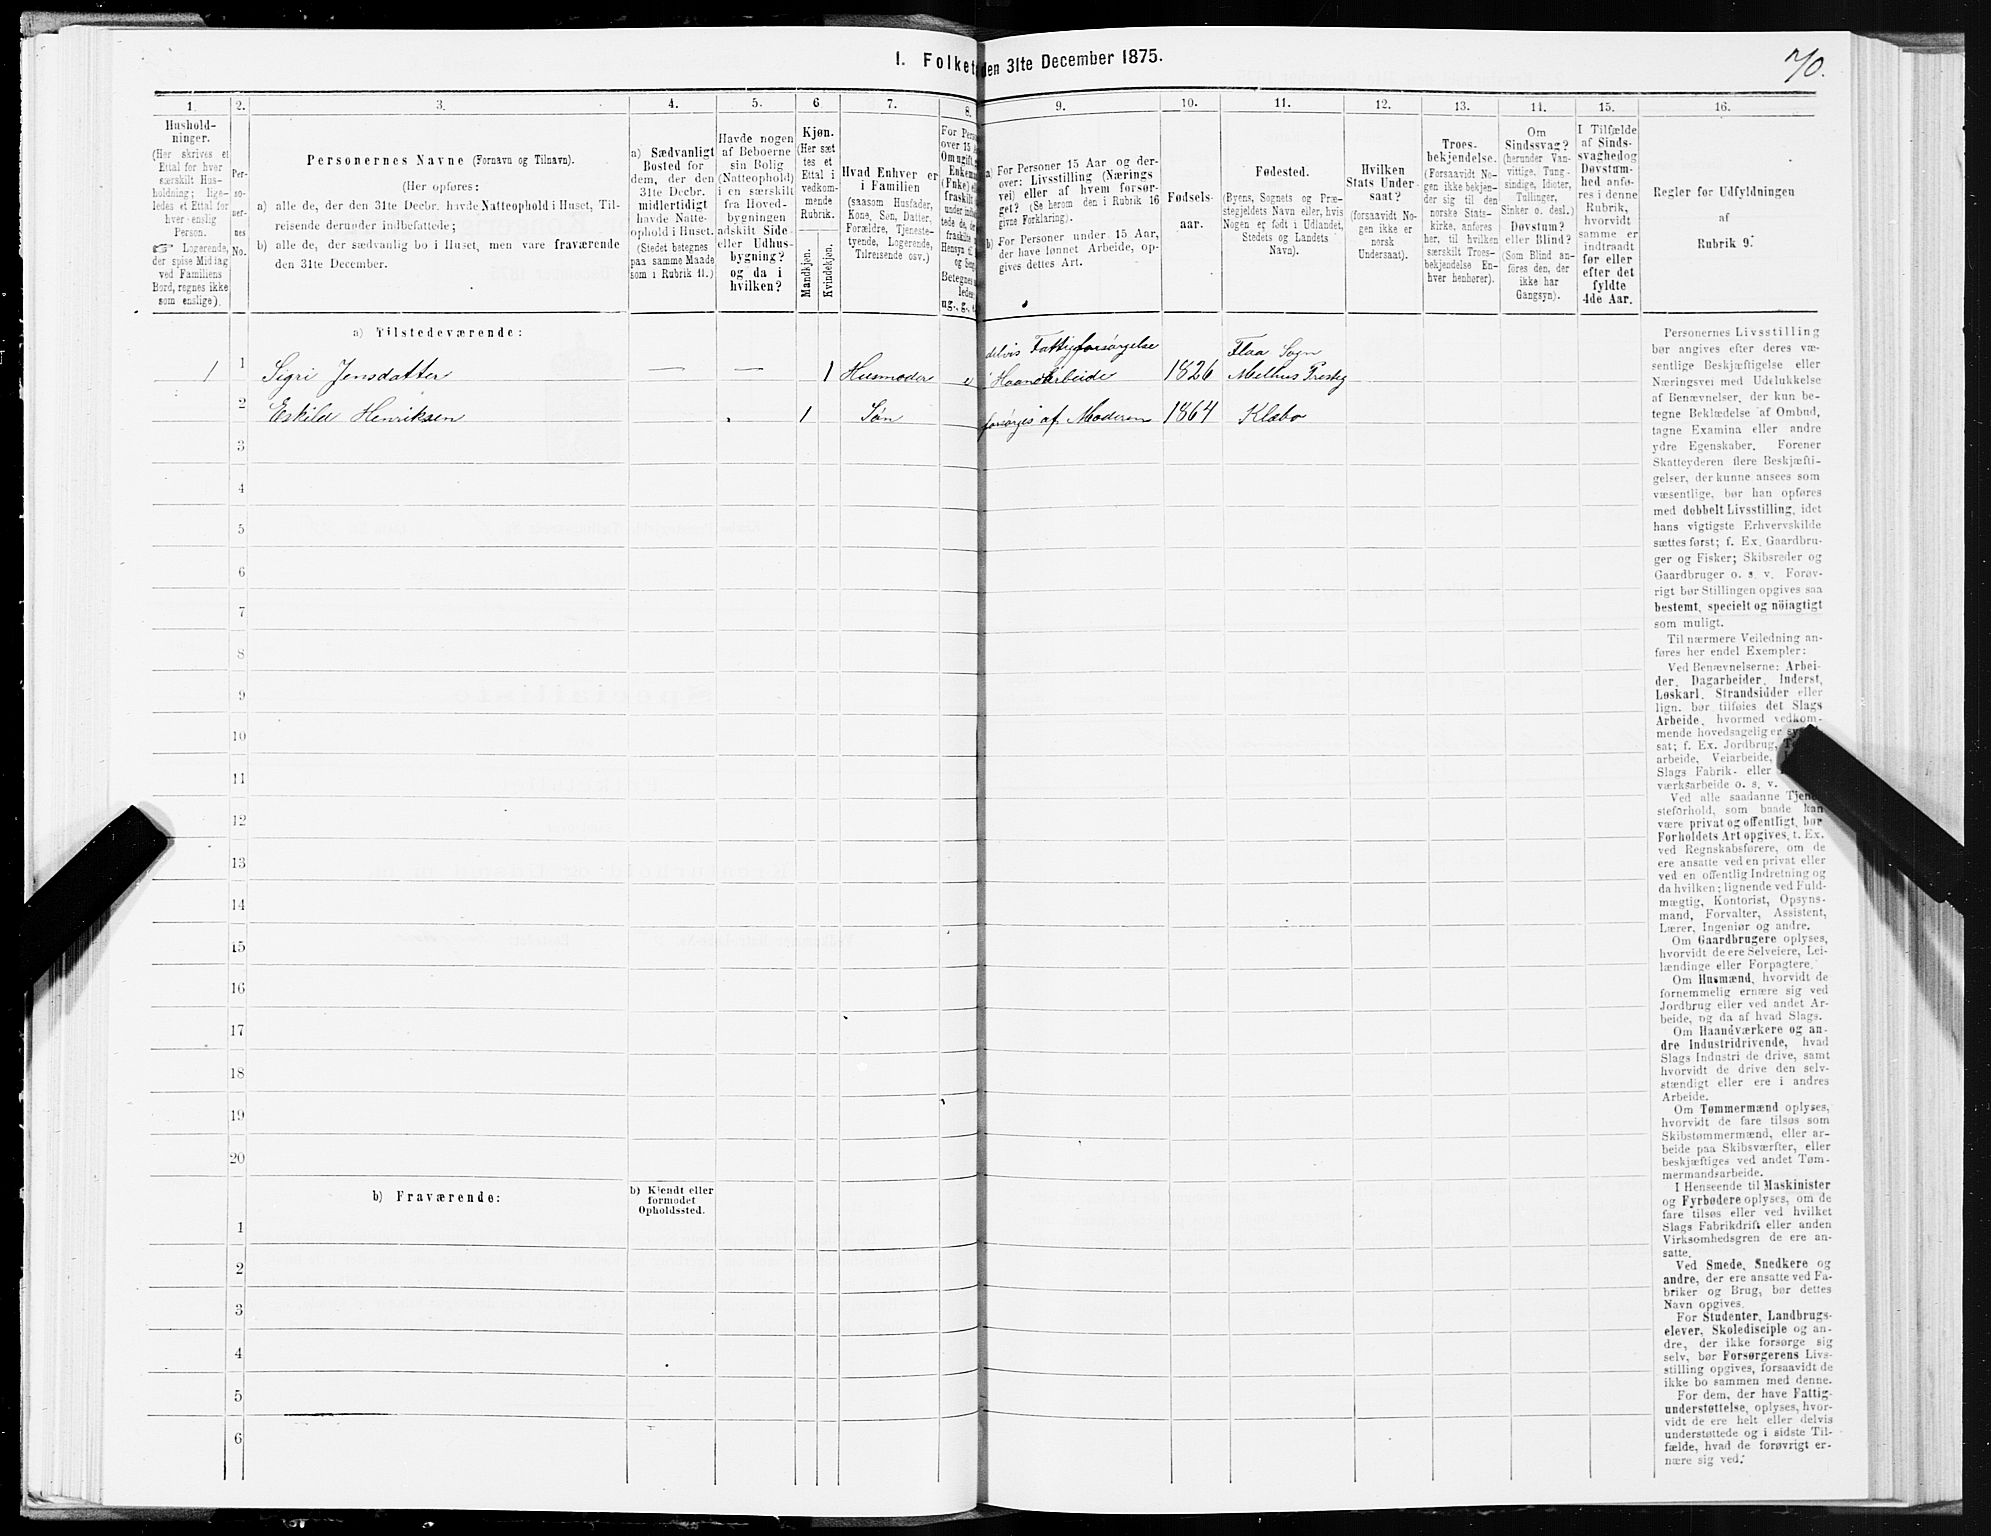 I. Folket
den 31te December 1875.
70.
1.
2.
3.
4.
5.
6
7.
8.
9.
10.
11.
12.
13.
14.
15.
16.
Hushold-
ninger.
(Her skrives et
Ettal for hver
særskilt Hus-
holdning; lige-
ledes et Ettal for
hver enslig
Person.
☞ Logerende,
der spise Middag
ved Familiens
Bord, regnes ikke
som enslige).
Per-
so-
ner-
nes
No.
Personernes Navne (Fornavn og Tilnavn).
(Her opføres:
a) alle de, der den 31te Decbr. havde Natteophold i Huset, Til-
reisende derunder indbefattede;
b) alle de, der sædvanlig bo i Huset, men vare fraværende
den 31te December.
a) Sædvanligt
Bosted for
dem, der den
31te Decbr.
midlertidigt
havde Natte-
ophold i Huset.
(Stedet betegnes
paa samme Maade
som i Rubrik 11.)
Havde nogen
af Beboerne
sin Bolig
(Natteophold)
i en særskilt
fra Hoved-
bygningen
adskilt Side-
eller Udhus-
bygning?
og da i
hvilken?
Kjøn.
(Her sæt
tes et
Ettal i
vedkom-
mende
Rubrik.
Mandkjøn.
Kvindekjøn.
Hvad Enhver er
i Familien
(saasom Husfader,
Kone, Søn, Datter,
Forældre, Tjeneste-
tyende, Logerende,
Tilreisende osv.)
For Pers
over 15 A
Om ugift,
Enkem
(Enke) el
fraskilt
under indb
tede de, der
fraskilte
Hensyn ti
og Seng
Betegnes
ledes:
ug., g.,
a) For Personer 15 Aar og der-
over: Livsstilling (Nærings
vei) eller af hvem forsør-
get? (Se herom den i Rubrik 16
givne Forklaring).
b) For Personer under 15 Aar,
der have lønnet Arbeide, op-
gives dettes Art.
Fødsels-
aar.
Fødested.
(Byens, Sognets og Præ-
stegjeldets Navn eller, hvis
Nogen er født i Udlandet,
Stedets og Landets
Navn).
Hvilken
Stats Under-
saat?
(forsaavidt No-
gen ikke er
norsk
Undersaat).
Troes-
bekjendelse.
(Forsaavidt No-
gen ikke bekjen-
der sig til den
norske Stats-
kirke, anføres
her, til hvilken
særskilt Troes-
bekjendelse En-
hver henhører).
Om
Sindssvag?
(herunder Van-
vittige, Tung-
sindige, Idioter,
Tullinger,
Sinker o. desl.)
Døvstum?
eller Blind?
(Som Blind an-
føres den, der
ikke har
Gangsyn).
I Tilfælde
af Sinds-
svaghed og
Døvstum-
hed anfø-
res i denne
Rubrik,
hvorvidt
samme er
indtraadt
før eller
efter det
fyldte
4de Aar.
Regler for Udfyldningen
af
Rubrik 9.
a) Tilstedeværende:
1 1 Sigri Jensdatter — — 1 Husmoder e delvis Fattigforsørgelse Haandarbeide 1826 Flaa Sogn Melhus Prestg
2 Eskild Henriksen 1 Søn forsørges af Moderen 1864 Klæbo
3
4
5
6
7
8
9
10
11
12
13
14
15
16
17
18
19
20
b) Fraværende:
b) Kjendt eller
formodet
Opholdssted.
1
2
3
4
5
6
Personernes Livsstilling
bør angives efter deres væ-
sentlige Beskjæftigelse eller
Næringsvei med Udelukkelse
af Benævnelser, der kun be-
tegne Beklædelse af Ombud,
tagne Examina eller andre
ydre Egenskaber. Forener
Skatteyderen flere Beskjæfti-
gelser, der kunne ansees som
væsentlige, bør han opføres
med dobbelt Livsstilling, idet
hans vigtigste Erhvervskilde
sættes først; f. Ex. Gaardbru-
ger og Fisker; Skibsreder og
Gaardbruger o. s. v. Forøv-
rigt bør Stillingen opgives saa
bestemt, specielt og nöiagtigt
som muligt.
Til nærmere Veiledning an-
føres her endel Exempler:
Ved Benævnelserne: Arbei-
der, Dagarbeider, Inderst,
Løskarl, Strandsidder eller
lign. bør tilføies det Slags
Arbeide, hvormed vedkom-
mende hovedsagelig er
sat; f. Ex. Jordbrug,
arbeide, Veiarbeide,
Slags Fabrik- eller
værksarbeide o. s. v.
Ved alle saadanne Tjene-
steforhold, som baade kan
være privat og offentligt, bør
Forholdets Art opgives, t. Ex.
ved Regnskabsførere, om de
ere ansatte ved en privat eller
ved en offentlig Indretning og
da hvilken; lignende ved Fuld-
mægtig, Kontorist, Opsyns-
mand, Forvalter, Assistent,
Lærer, Ingeniør og andre.
Om Gaardbrugere oplyses,
hvorvidt de ere Selveiere, Lei-
lændinge eller Forpagtere.
Om Husmænd, hvorvidt de
fornemmelig ernære sig ved
Jordbrug eller ved andet Ar-
beide, og da af hvad Slags.
Om Haandværkere og an-
dre Industridrivende, hvad
Slags Industri de drive, samt
hvorvidt de drive den selv-
stændigt eller ere i andres
Arbeide.
Om Tømmermænd oplyses,
hvorvidt de fare tilsøs som
Skibstømmermænd, eller ar-
beide paa Skibsværfter, eller
beskjæftiges ved andet Tøm-
mermandsarbeide.
I Henseende til Maskinister
og Fyrbødere oplyses, om de
fare tilsøs eller ved hvilket
Slags Fabrikdrift eller anden
Virksomhedsgren de ere an-
satte.
Ved Smede, Snedkere og
andre, der ere ansatte ved Fa-
briker og Brug, bør dettes
Navn opgives.
For Studenter, Landbrugs-
elever, Skoledisciple og an-
dre, der ikke forsørge sig
selv, bør Forsørgerens Livs-
stilling opgives, forsaavidt de
ikke bo sammen med denne.
For dem, der have Fattig-
understøttelse, oplyses, hvor-
vidt de ere helt eller delvis
understøttede og i sidste Til-
fælde, hvad de forøvrigt er-
nære sig ved.